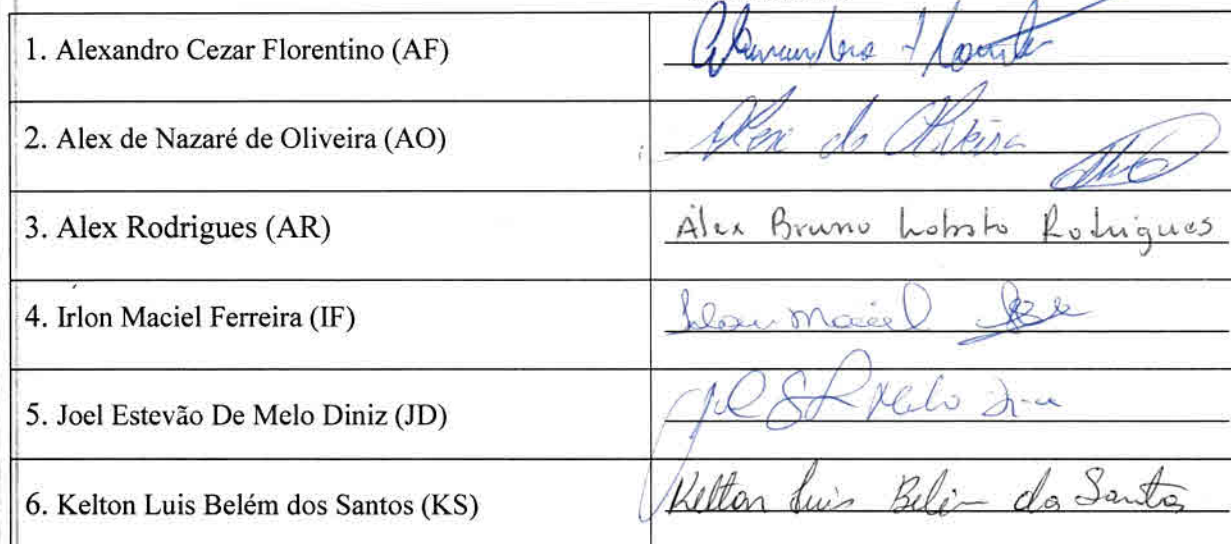 1. Alexandro Cezar Florentino (AF)
2. Alex de Nazaré de Oliveira (AO)
Alex de Oliveira
3. Alex Rodrigues (AR)
Álex Bruno Lobato Rodrigues
4. Irlon Maciel Ferreira (IF)
Maciel
5. Joel Estevão De Melo Diniz (JD)
Melo
6. Kelton Luis Belém dos Santos (KS)
Kelton Luis Belém dos Santos